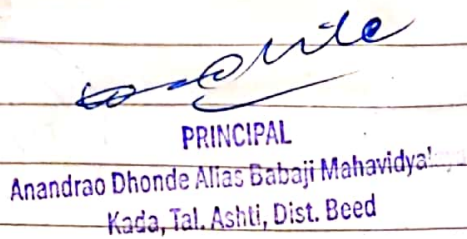 PRINCIPAL
Anandrao Dhonde Alias Babaji Mahavidyalaya
Kada, Tal. Ashti, Dist. Beed